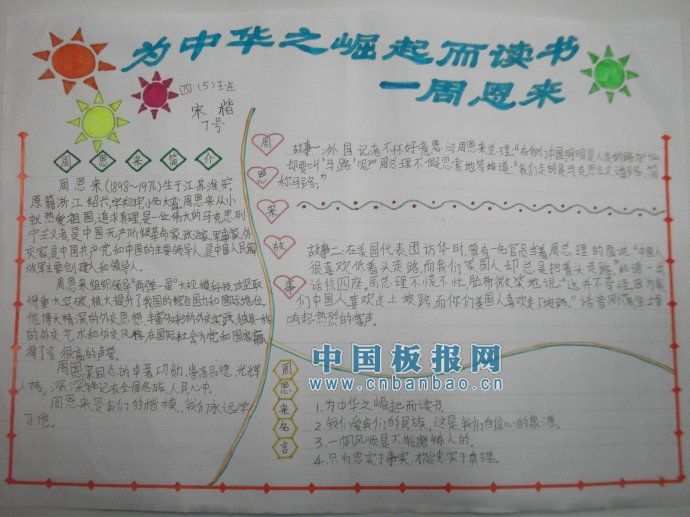 为中华之崛起而读书
一周恩来
四(5)班
宋楷
7号
周恩来简介
周恩来(1898~1976)生于江苏淮安,
原籍浙江绍兴,字翔宇,小名大鸾,周恩来从小
就热爱祖国,追求真理是一位伟大的马克思列
宁主义者是中国无产阶级革命家,政治家,军事家,外
交家是中国共产党和中国的主要领导人,是中国人民解
放军主要创建人和领导人。
周恩来组织领导"两弹一星"大规模科技攻坚取
得重大突破,极大提升了我国的综合国力和国际地位。
他博大精深的外交思想、丰富多彩的外交实践,独具一格
的外交艺术和外交风格在国际社会为党和国家赢
得了很高的声誉。
周恩来同志的卓著功勋、崇高品德、光辉
人格,深深铭记在全国各族人民心中。
周恩来是我们的楷模,我们永远学
习他。
周恩来故事
故事一:外国记者不怀好意思问周恩来总理:"在你们中国明明是人走的路为什么
却要叫'马路'呢?"周总理不假思索地答道:"我们走的是马克思主义道路,简
称马路。"
故事二:在美国代表团访华时,曾有一名官员当着周总理的面说:"中国人
很喜欢低着头走路,而我们美国人却总是抬着头走路。"此语一出
话惊四座,周总理不慌不忙,脸带微笑地说:"这并不奇怪,因为我
们中国人喜欢走上坡路,而你们美国人喜欢走下坡路。"话音刚落全场
响起热烈的掌声。
中国板报网
www.cnbanbao.cn
周恩来名言
1.为中华之崛起而读书
2.我们爱我们的民族,这是我们自信心的泉源。
3.一帆风顺是不能磨炼人的。
4.只有忠实于事实,才能忠实于真理。